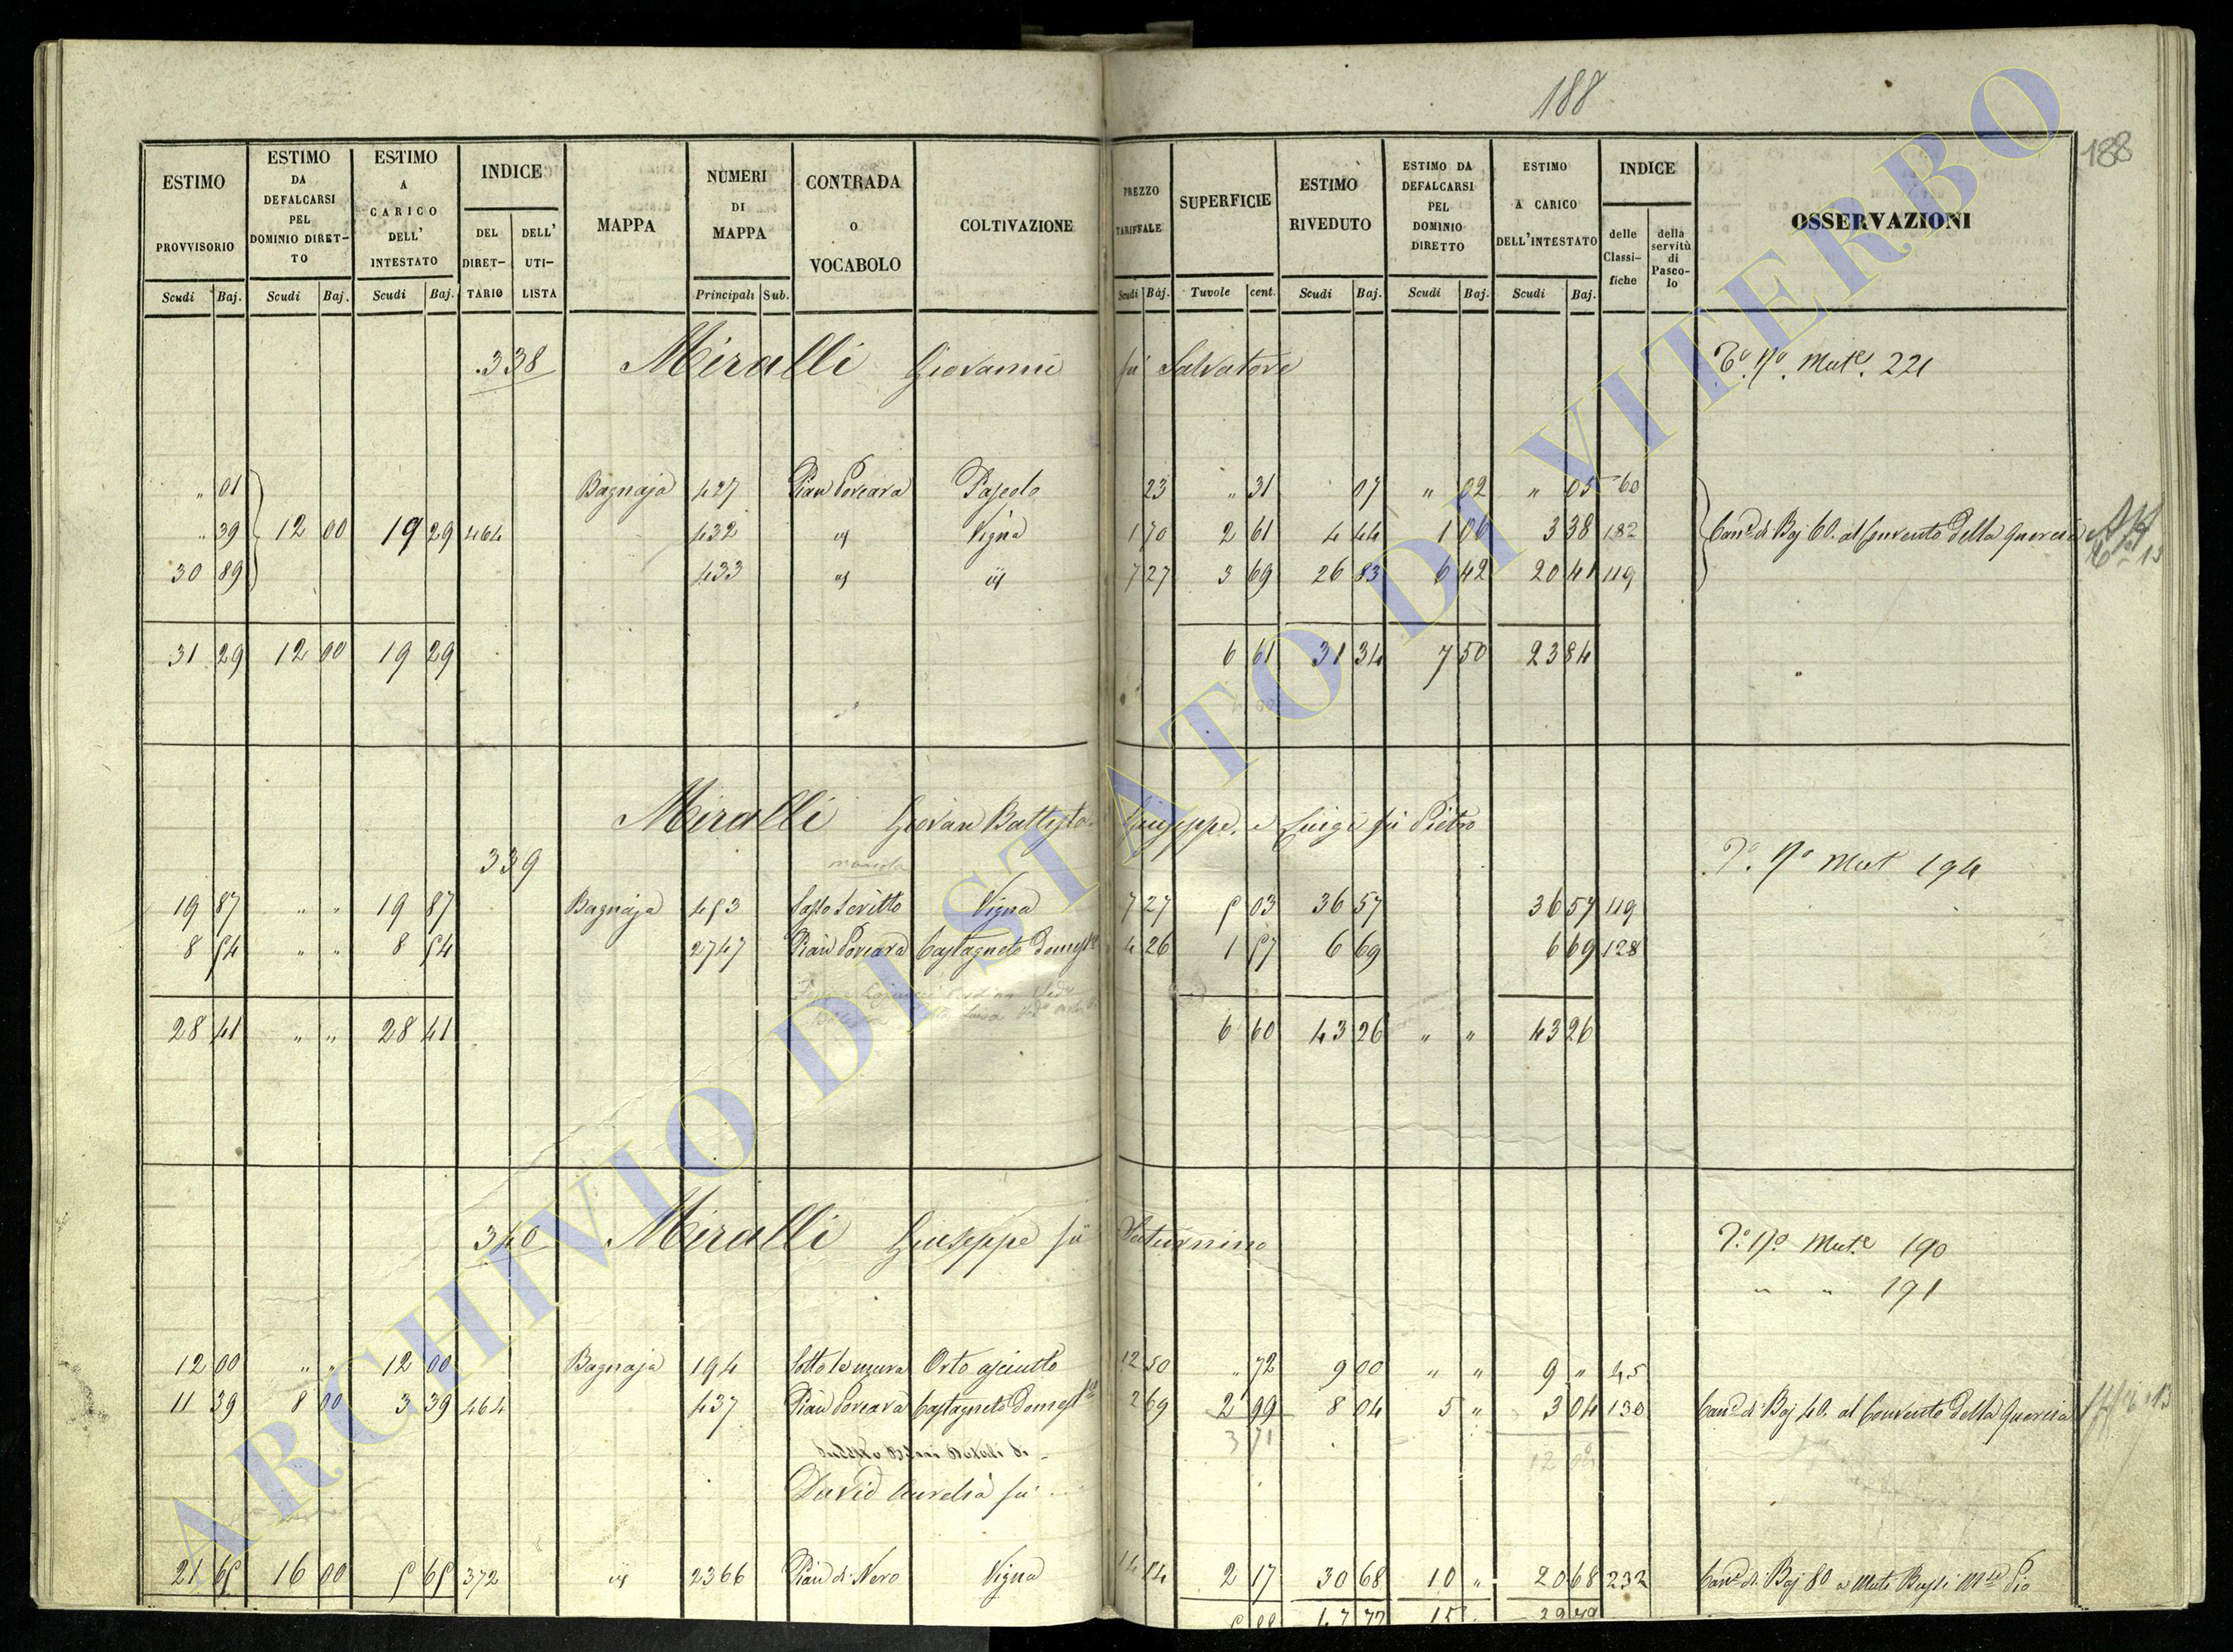 188
188
ESTIMO PROVVISORIO | ESTIMO DA DEFALCARSI PEL DOMINIO DIRET-TO | ESTIMO A CARICO DELL' INTESTATO | INDICE DEL DIRET-TARIO | DELL' UTI-LISTA | MAPPA | NUMERI DI MAPPA | CONTRADA O VOCABOLO | COLTIVAZIONE | PREZZO TARIFFALE | SUPERFICIE | ESTIMO RIVEDUTO | ESTIMO DA DEFALCARSI PEL DOMINIO DIRETTO | ESTIMO A CARICO DELL'INTESTATO | INDICE delle Classi-fiche | della servitù di Pasco-lo | OSSERVAZIONI
Scudi Baj. Scudi Baj. Scudi Baj. Principali Sub. Scudi Baj. Tavole cent. Scudi Baj. Scudi Baj. Scudi Baj.
338 Miralli Giovanni fu Salvatore Mut.e 221
" 01 Bagnaja 427 Pian Porcara Pascolo 23 " 31 07 " 02 " 05 60
" 39 12 00 19 29 464 432 " Vigna 1 70 2 61 4 44 1 06 3 38 182 Can.e di Baj 60. al Convento della Quercia
30 89 433 " " 7 27 3 69 26 83 6 42 20 41 119
31 29 12 00 19 29 6 61 31 34 7 50 23 84
Miralli Giovan Battista Giuseppe, e Luigi fu Pietro
339 Mut 194
19 87 " " 19 87 Bagnaja 453 Sasso Scritto Vigna 7 27 5 03 36 57 36 57 119
8 54 " " 8 54 2747 Pian Porcara Castagneto Domest.co 4 26 1 57 6 69 6 69 128
28 41 " " 28 41 6 60 43 26 " " 43 26
340 Miralli Giuseppe fu Saturnino Mut.e 190
" " 191
12 00 " " 12 00 Bagnaja 194 Sotto le mura Orto asciutto 12 50 " 72 9 00 " " 9 " 45
11 39 8 00 3 39 464 437 Pian Porcara Castagneto Domest.co 2 69 2 99 8 04 5 " 3 04 130 Can.e di Baj 40. al Convento della Quercia
3 71
David Aurelia fu
21 65 16 00 5 65 372 " 2366 Pian di Nero Vigna 14 14 2 17 30 68 10 " 20 68 232 Can.e di Baj 80 a Pio
5 88 47 72 15
ARCHIVIO DI STATO DI VITERBO